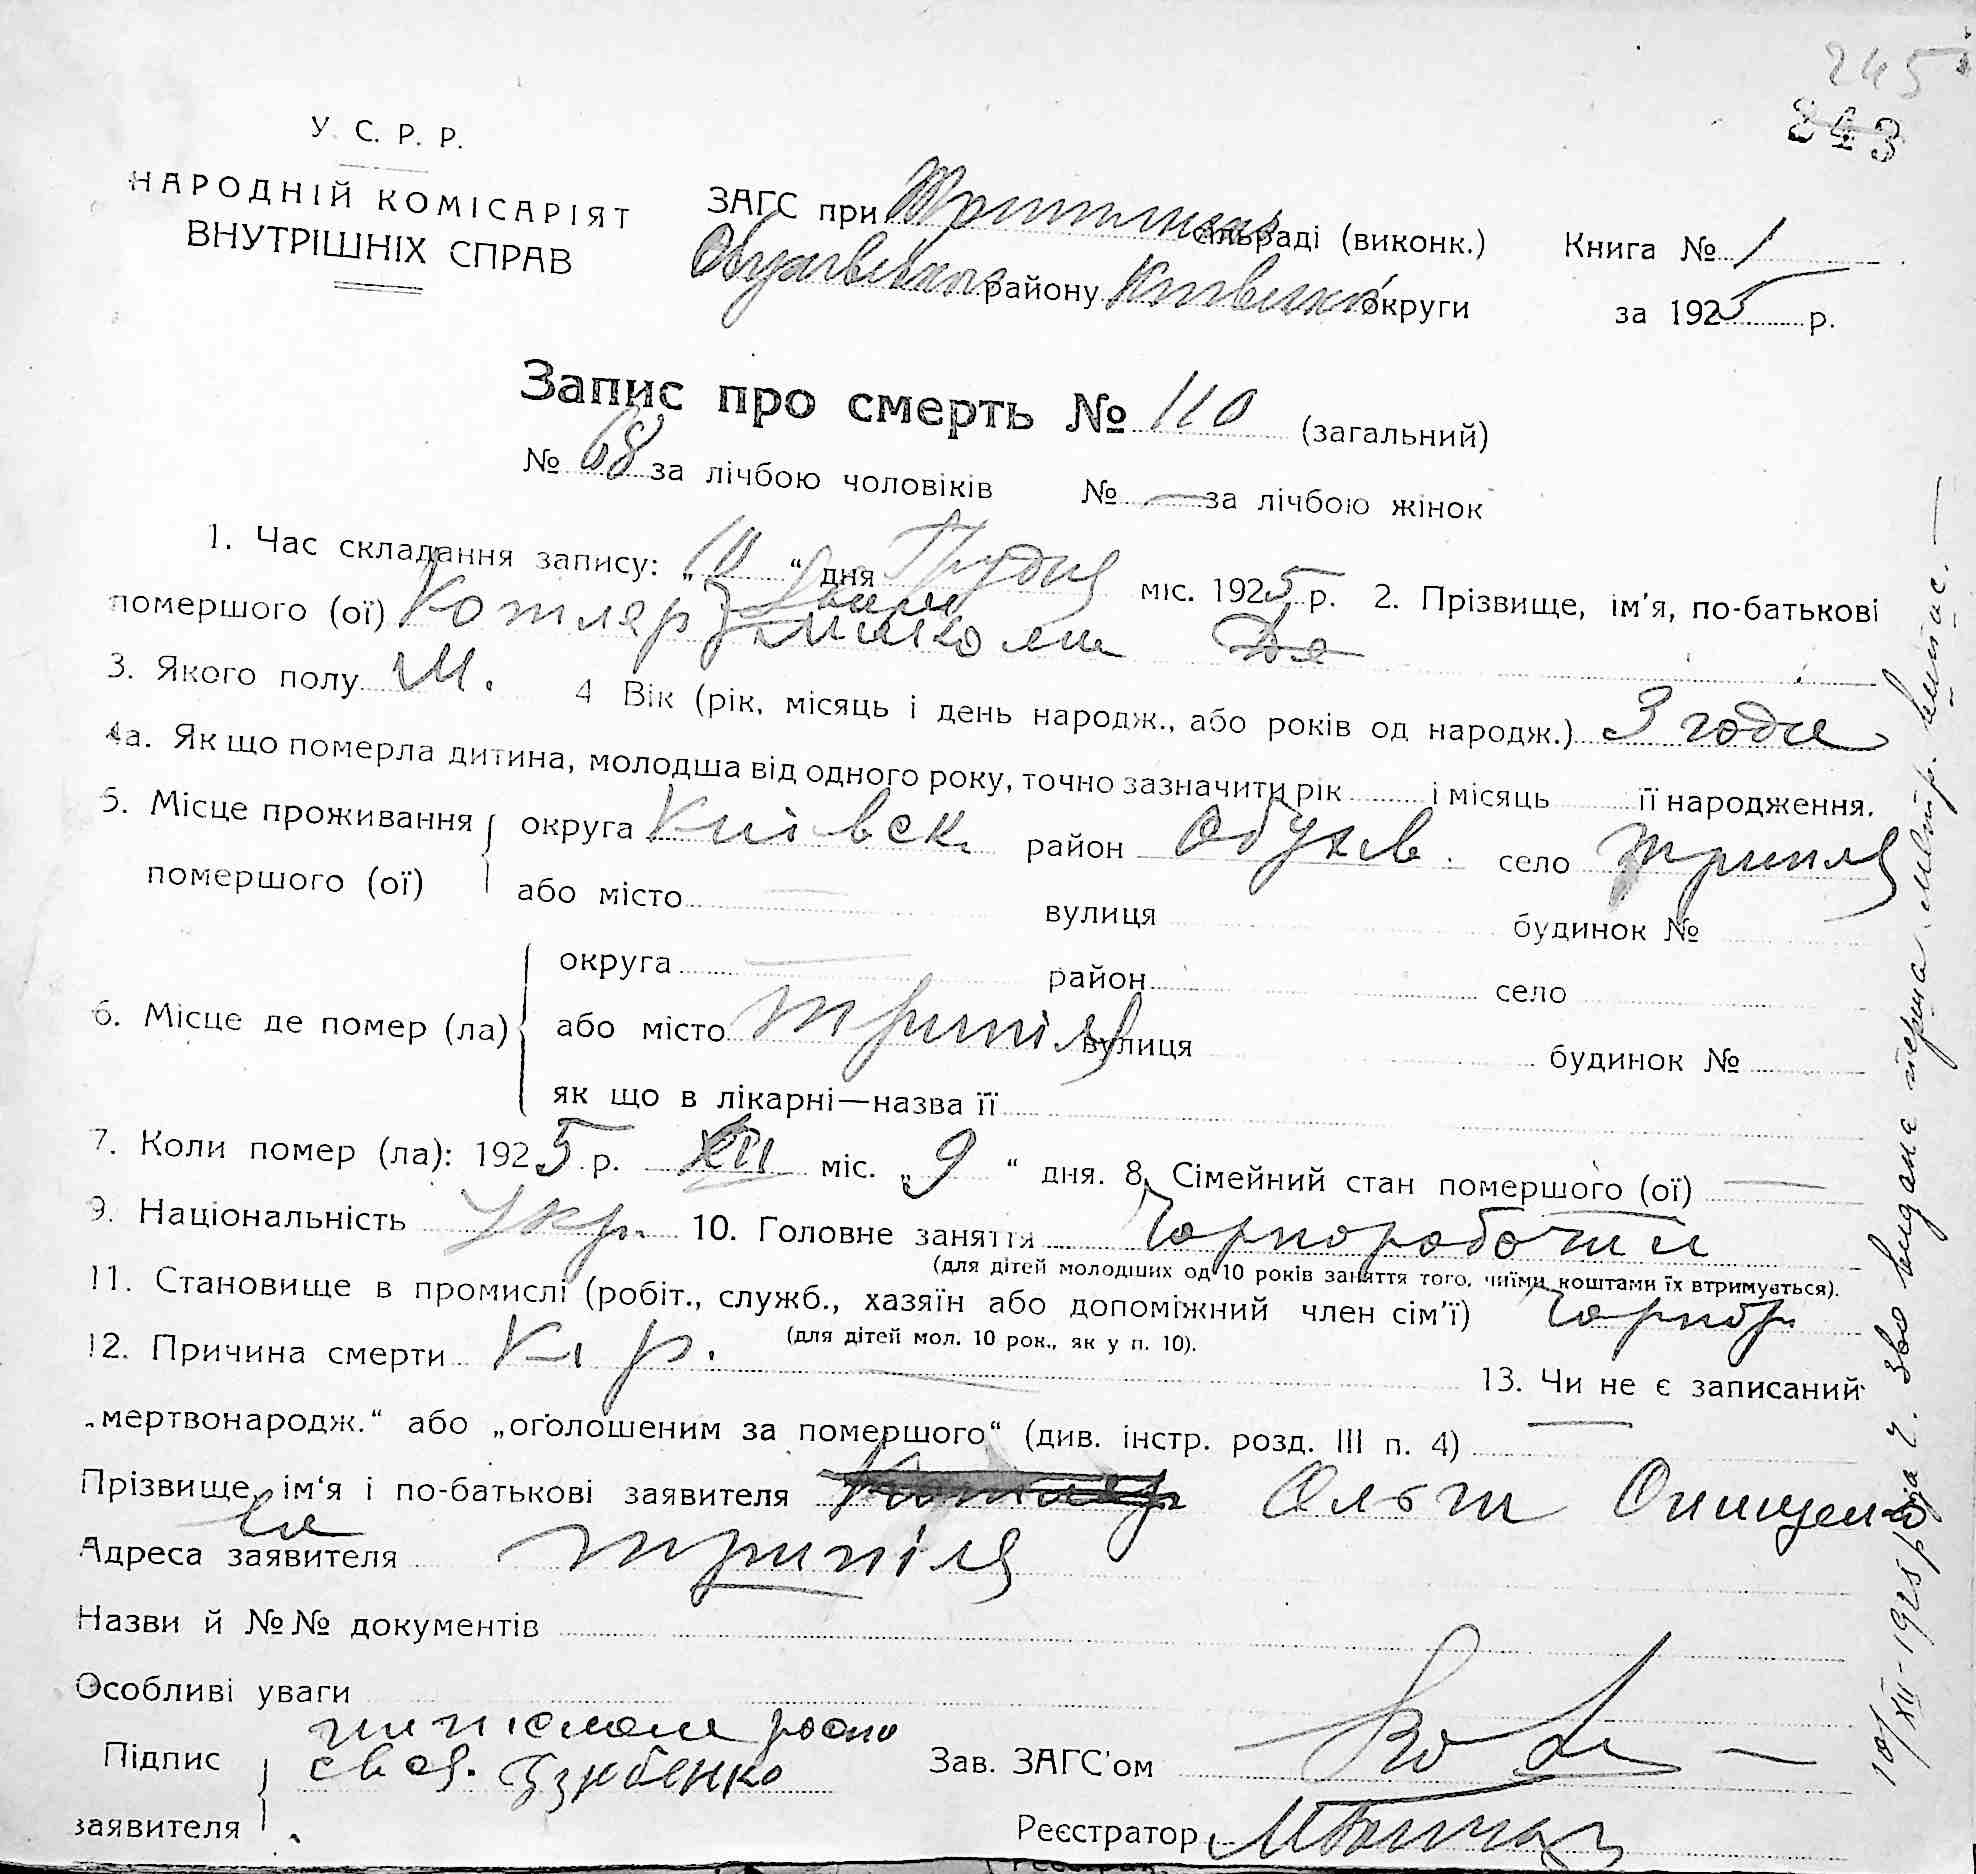 245
243
У. С. Р. Р.
НАРОДНІЙ КОМІСАРІЯТ
ВНУТРІШНІХ СПРАВ
ЗАГС при сільраді (виконк.) Книга № 1
району округи за 1925 р.
Запис про смерть № 110 (загальний)
№ 68 за лічбою чоловіків № — за лічбою жінок
1. Час складання запису: „10“ дня Грудня міс. 1925 р. 2. Прізвище, ім'я, по-батькові
помершого (ої) Котляр Микола
3. Якого полу М. 4 Вік (рік, місяць і день народж., або років од народж.) 3 годи
4а. Як що померла дитина, молодша від одного року, точно зазначити рік і місяць її народження.
5. Місце проживання округа Київськ. район Обухів. село Трипілля
помершого (ої) або місто — вулиця будинок №
округа — район село
6. Місце де помер (ла) або місто Трипілля вулиця будинок №
як що в лікарні—назва її
7. Коли помер (ла): 1925 р. XII міс. „9“ дня. 8. Сімейний стан помершого (ої) —
9. Національність Укр. 10. Головне заняття Чорноробочий
(для дітей молодших од 10 років заняття того, чиїми коштами їх втримується).
11. Становище в промислі (робіт., служб., хазяїн або допоміжний член сім'ї) Чорноб.
(для дітей мол. 10 рок., як у п. 10).
12. Причина смерти Кір. — 13. Чи не є записаний
„мертвонародж.“ або „оголошеним за помершого“ (див. інстр. розд. III п. 4) —
Прізвище, ім'я і по-батькові заявителя Котляр Ольги Онищен
ко
Адреса заявителя Трипілля
Назви й №№ документів
Особливі уваги
Підпис
заявителя
Зав. ЗАГС'ом
Реєстратор
10/XII-1925 р. за ч. видане перша метр. випис.—